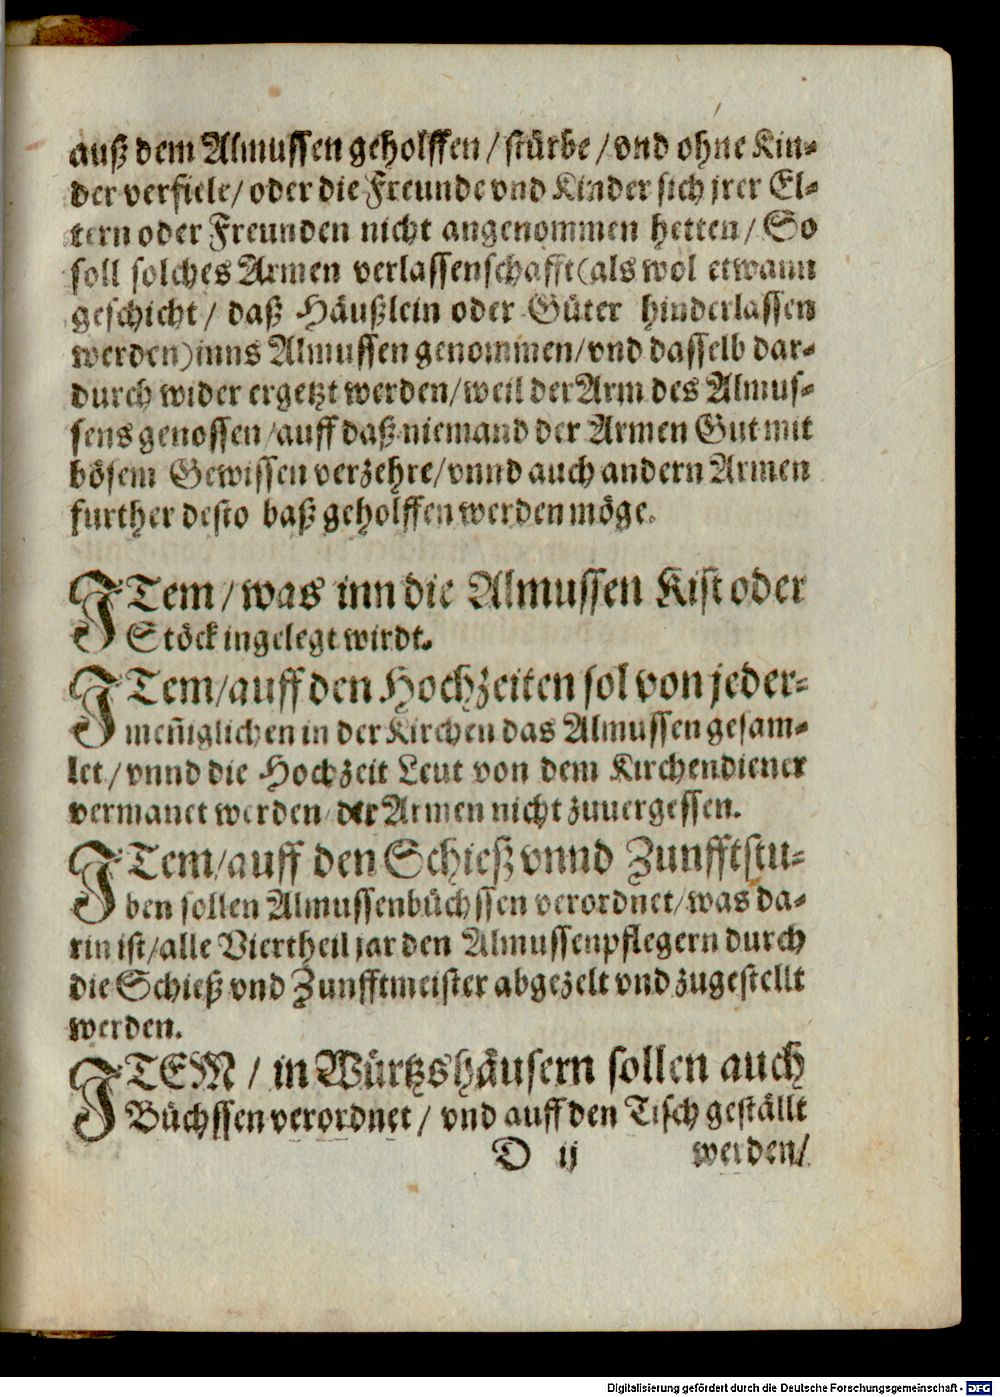 auß dem Almussen geholffen / stürbe / vnd ohne Kin-
der verfiele / oder die Freunde vnd Kinder sich jrer El-
tern oder Freunden nicht angenommen hetten / So
soll solches Armen verlassenschafft (als wol etwann
geschicht / daß Häußlein oder Güter hinderlassen
werden) inns Almussen genommen / vnd dasselb dar-
durch wider ergetzt werden / weil der Arm des Almus-
sens genossen / auff daß niemand der Armen Gut mit
bösem Gewissen verzehre / vnnd auch andern Armen
further desto baß geholffen werden möge.
ITem / was inn die Almussen Kist oder
Stöck ingelegt wirdt.
ITem / auff den Hochzeiten sol von jeder-
meñiglichen in der Kirchen das Almussen gesam-
let / vnnd die Hochzeit Leut von dem Kirchendiener
vermanet werden / der Armen nicht zuuergessen.
ITem / auff den Schieß vnnd Zunfftstu-
ben sollen Almussenbüchssen verordnet / was da-
rin ist / alle Viertheil jar den Almussenpflegern durch
die Schieß vnd Zunfftmeister abgezelt vnd zugestellt
werden.
ITEM / in Würtzshäusern sollen auch
Büchssen verordnet / vnd auff den Tisch geställt
D ij werden /
Digitalisierung gefördert durch die Deutsche Forschungsgemeinschaft - DFG